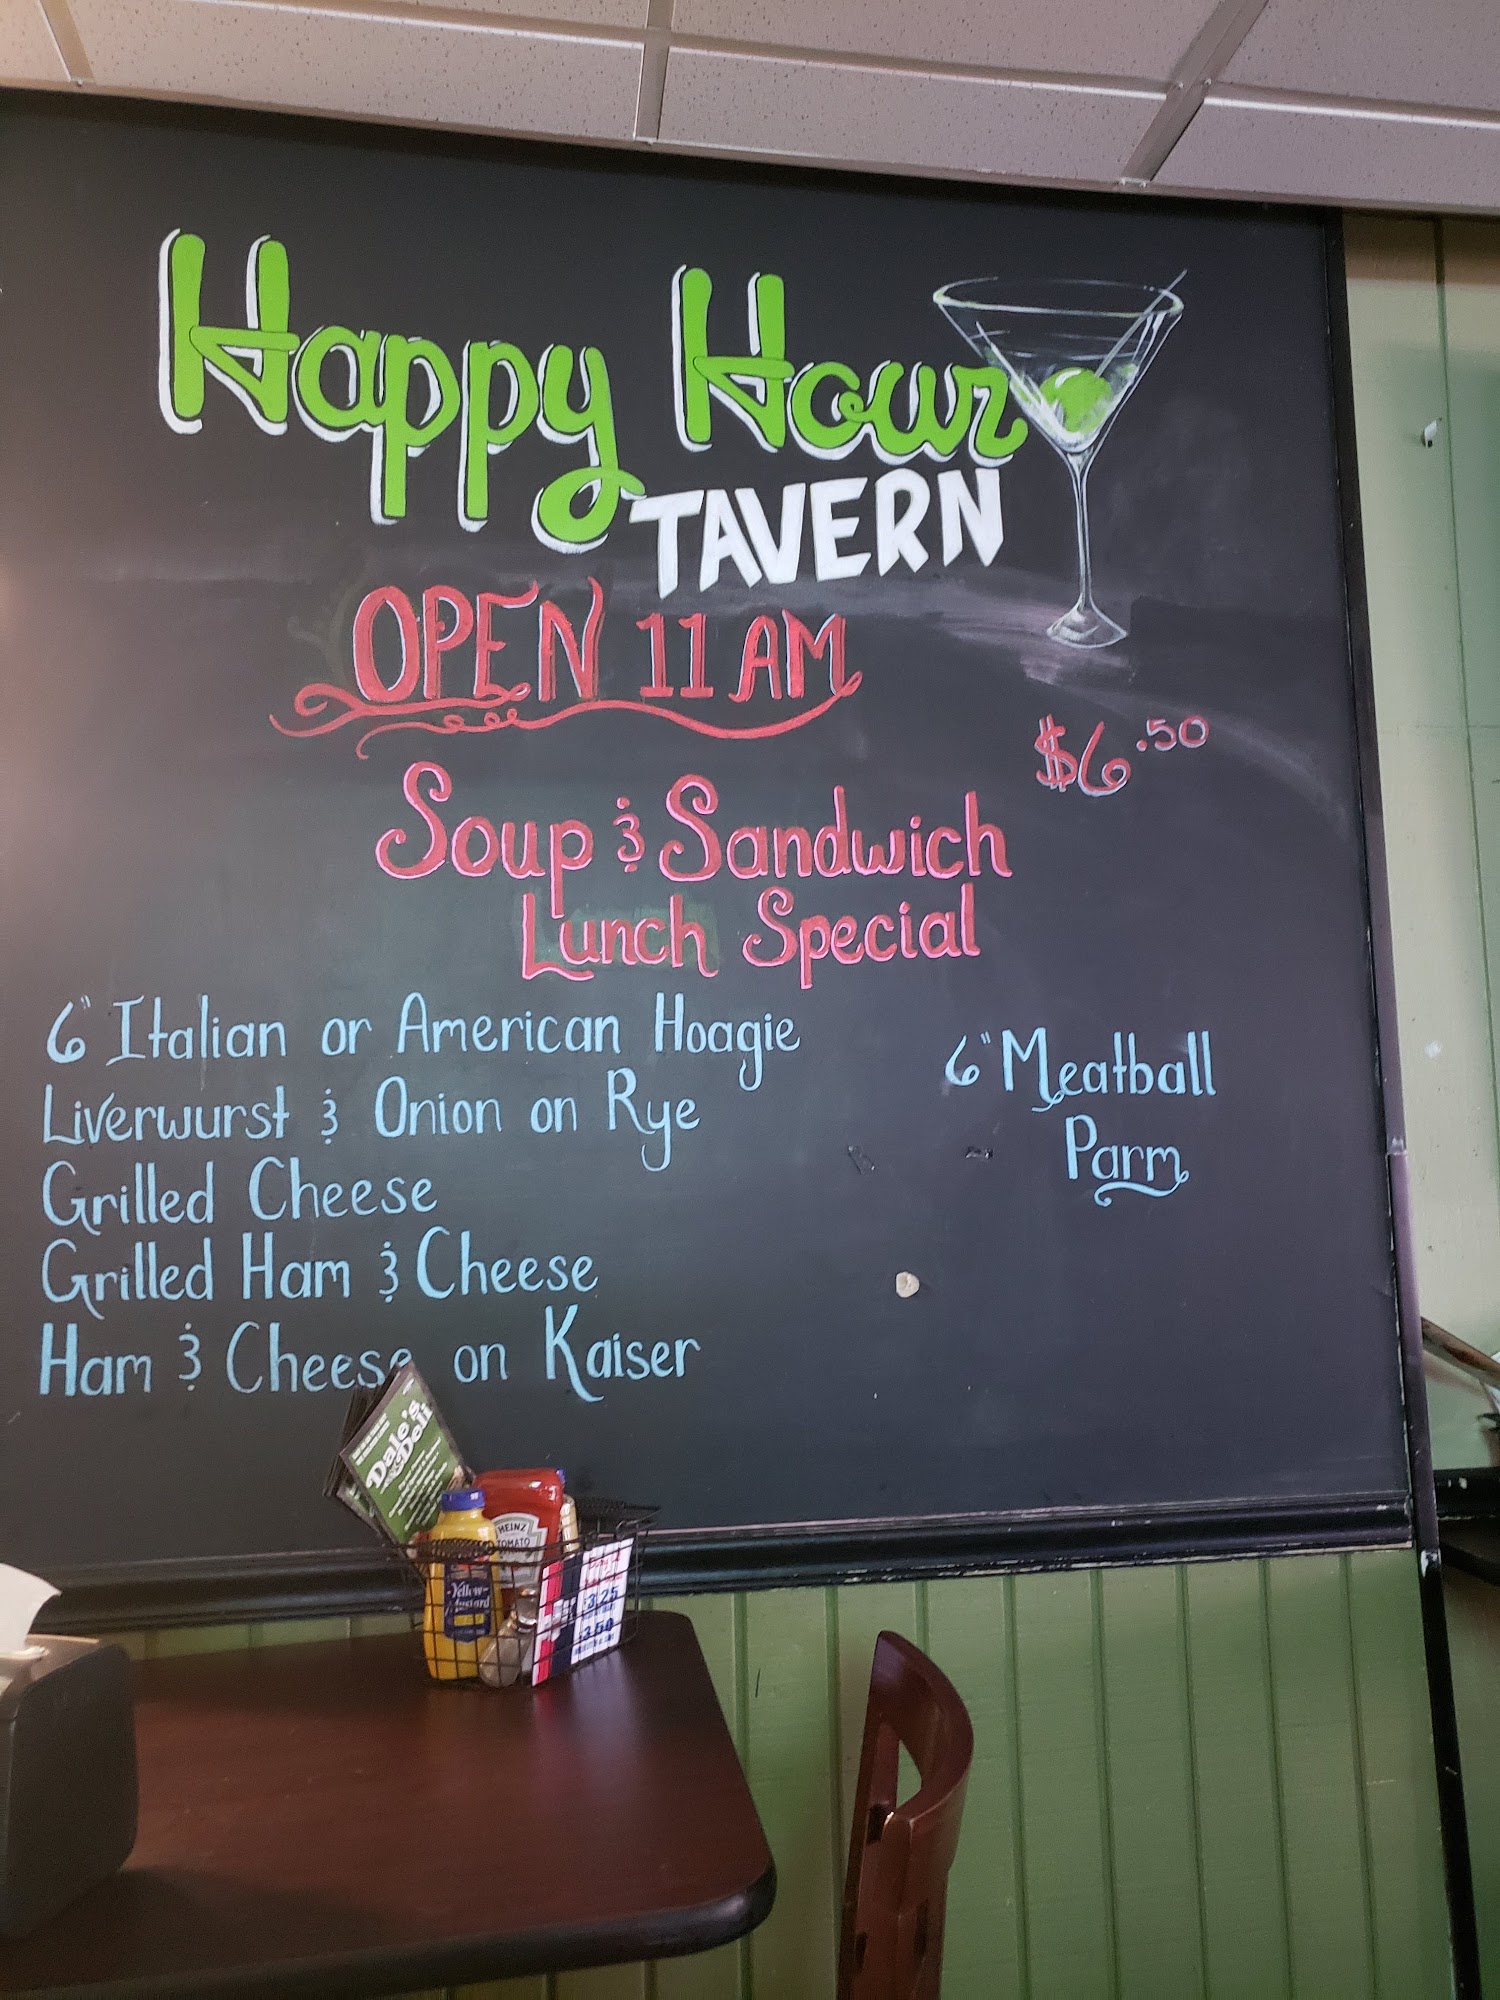 Happy Hour
TAVERN
OPEN 11 AM
$6.50
Soup & Sandwich
Lunch Special
6" Italian or American Hoagie
Liverwurst & Onion on Rye
Grilled Cheese
Grilled Ham & Cheese
Ham & Cheese on Kaiser
6" Meatball
Parm
Dale's
Deli
HEINZ
TOMATO
Yellow
Mustard
3.25
3.50